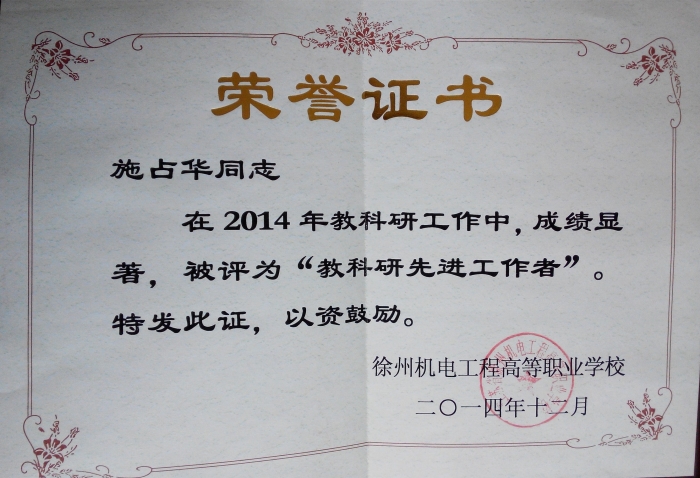 荣誉证书
施占华同志
在 2014 年教科研工作中，成绩显
著，被评为“教科研先进工作者”。
特发此证，以资鼓励。
徐州机电工程高等职业学校
二〇一四年十二月